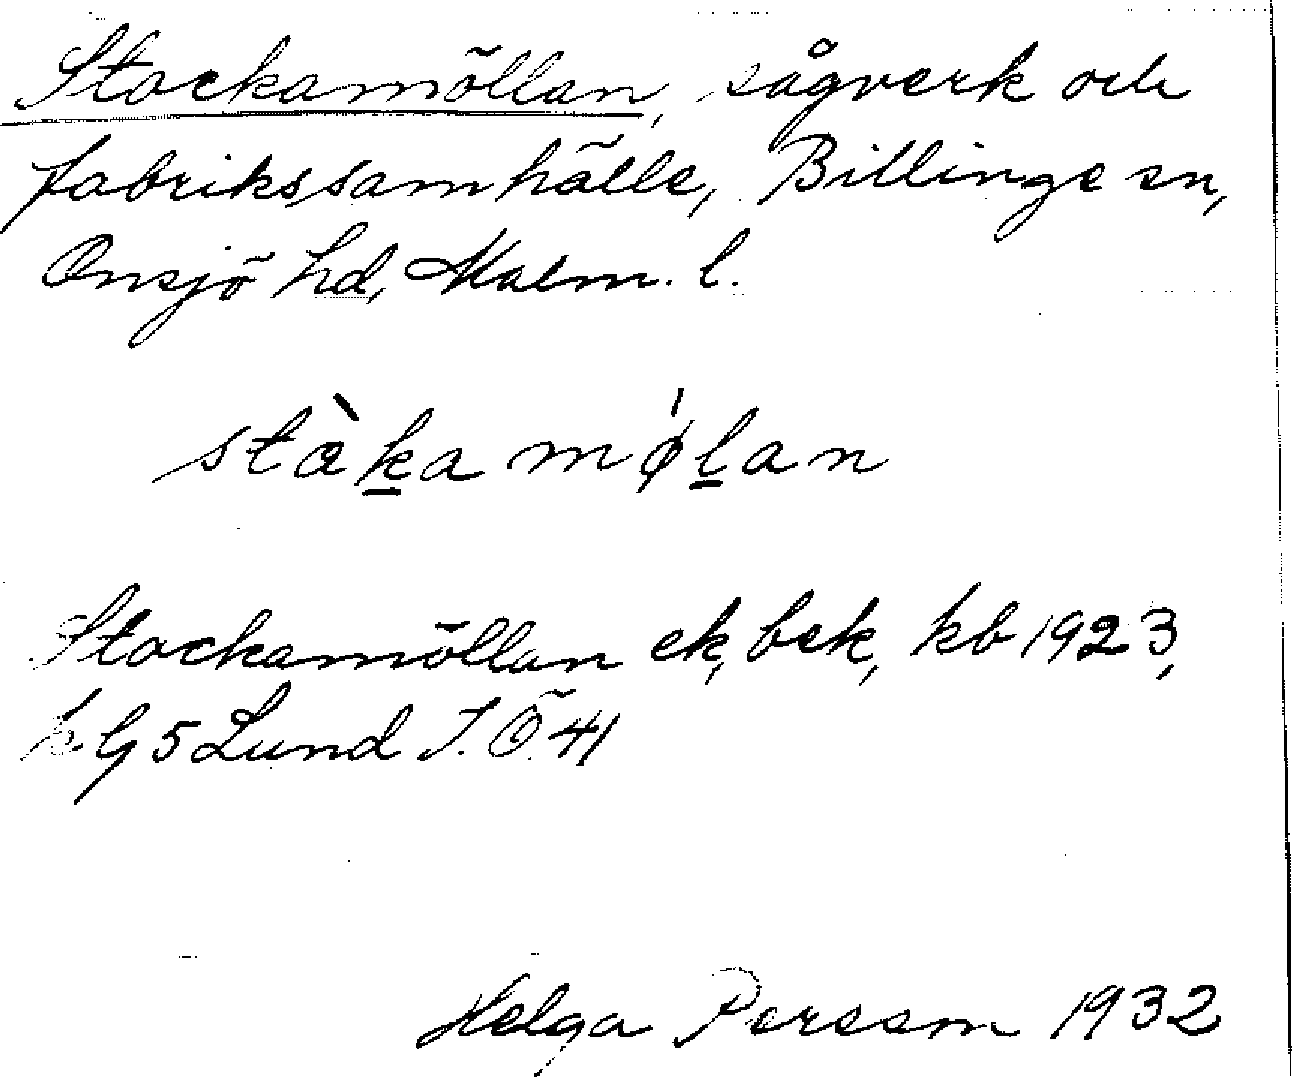 Stockamöllan, sågverk och
fabrikssamhälle, Billinge sn,
Onsjö hd, Malm. l.
stàk̲a mǿl̲an
Stockamöllan ek, bek, kb 1923,
k. G5 Lund I. Ö. 41
Helga Persson 1932